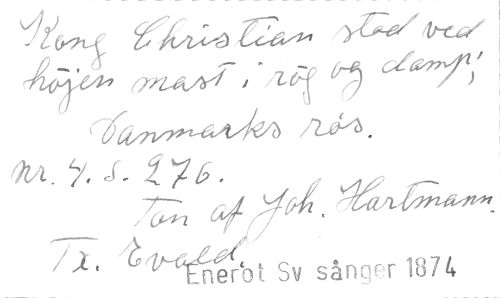 Kong Christian stod ved
höjen mast i rög og damp;
Danmarks rös.
nr. 4. S. 276.
Ton af Joh. Hartmann.
Tx. Evald.
Enerot Sv sånger 1874